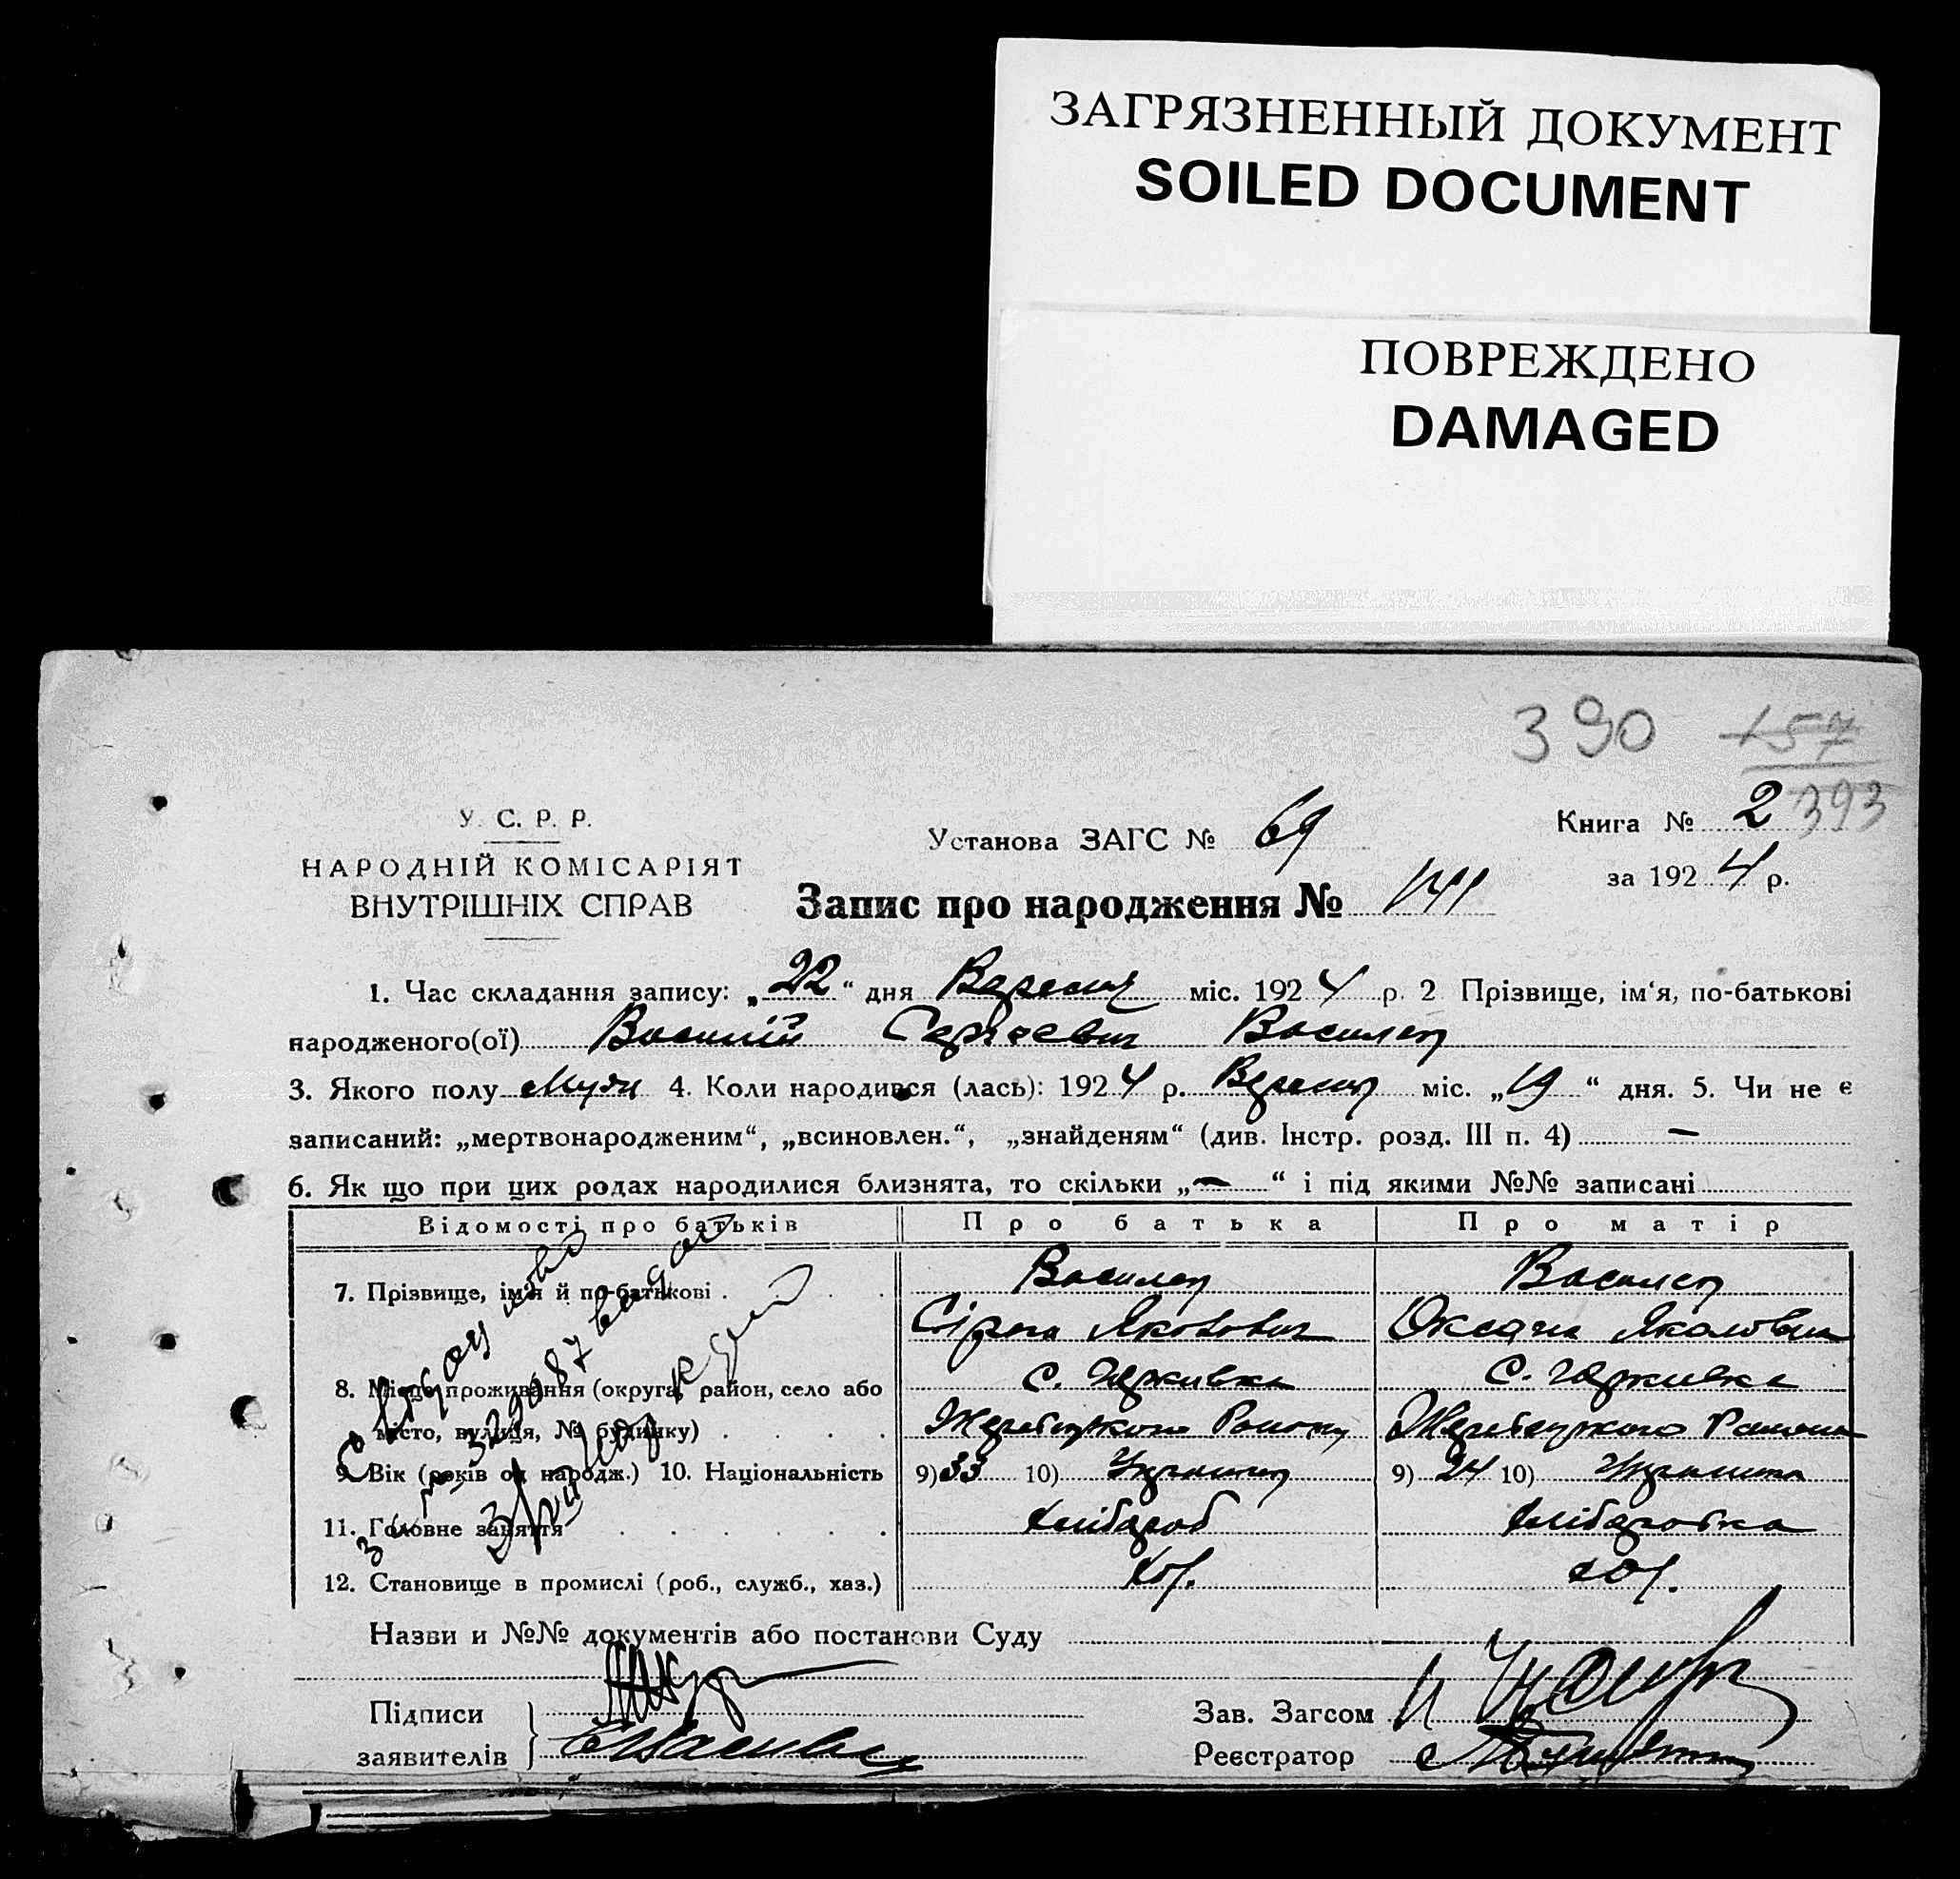 ЗАГРЯЗНЕННЫЙ ДОКУМЕНТ
SOILED DOCUMENT
ПОВРЕЖДЕНО
DAMAGED
390 157
393
У. С. Р. Р.
НАРОДНІЙ КОМІСАРІЯТ
ВНУТРІШНІХ СПРАВ
Установа ЗАГС № 69
Книга № 2
за 1924 р.
Запис про народження № 141
1. Час складання запису: „22“ дня Вересня міс. 1924 р. 2 Прізвище, ім'я, по-батькові
народженого(ої) Василій Сергеевич Василец
3. Якого полу Мужч 4. Коли народився (лась): 1924 р. Вересня міс. „19“ дня. 5. Чи не є
записаний: „мертвонародженим“, „всиновлен.“, „знайденям“ (див. Інстр. розд. III п. 4) —
6. Як що при цих родах народилися близнята, то скільки „—“ і під якими №№ записані
Відомості про батьків Про батька Про матір
7. Прізвище, ім'я й по-батькові Василец Василец
Яковович Оксана
8. Місце проживання (округа, район, село або с. с.
місто, вулиця, № будинку) Жеребецкого Району Жеребецкого Району
9. Вік (років од народж.) 10. Національність 9) 33 10) Украинец 9) 24 10) Украинка
11. Головне заняття хлібароб хлібаробка
12. Становище в промислі (роб., служб., хаз.) хоз. хоз.
Назви и №№ документів або постанови Суду
Підписи
заявителів
Зав. Загсом
Реєстратор